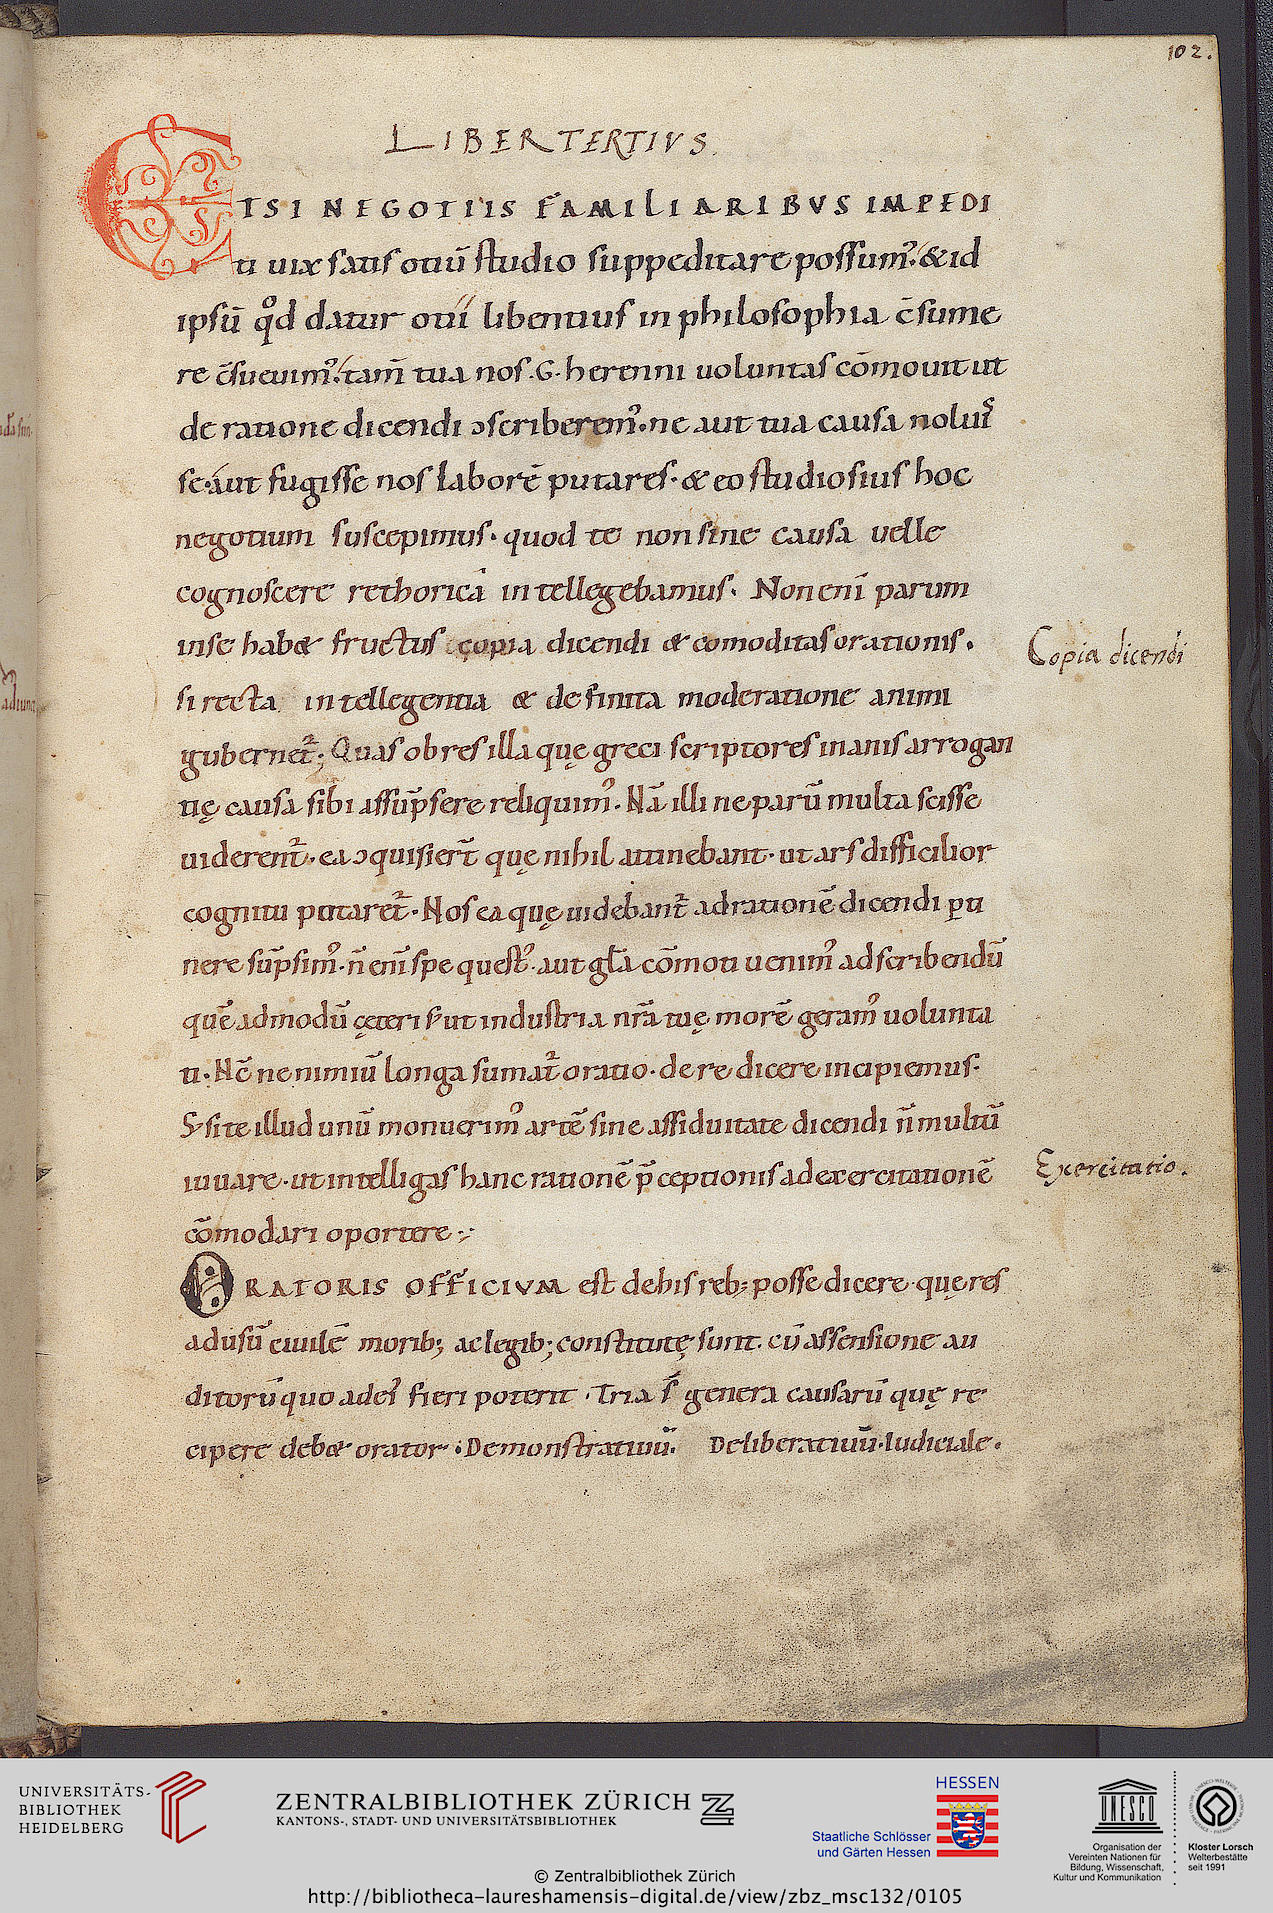 102.
LIBER TERTIVS.
ETSI NEGOTIIS FAMILIARIBVS IMPEDI
ti uix satis otiū studio suppeditare possum᾿. & id
ipsū qͦd datur otii libentius in philosophia c̄sume
re c̄sueuim᾿. tam̄ tua nos .G. herenni uoluntas cōmouit ut
de ratione dicendi ɔscriberem᾿. ne aut tua causa noluis
se. aut fugisse nos laborē putares. & eo studiosius hoc
negotium suscepimus. quod te non sine causa uelle
cognoscere rethoricā intellegebamus. Non enī parum
in se hab& fructus copia dicendi & comoditas orationis.
si recta intellegentia & definita moderatione animi
gubernetᷣ; Quas ob res illa quę greci scriptores inanis arrogan
tię causa sibi assūpsere reliquim᾿. Nā illi ne parū multa scisse
uiderentᷣ. ea ɔquisiert̄ quę nihil attinebant. ut ars difficilior
cognitu putaretᷣ. Nos ea quę uidebantᷣ ad rationē dicendi ꝑti
nere sūpsim᾿. n̄ enī spe quest᾿. aut gl̄a cōmoti uenim᾿ ad scribendū
quē admodū cęteri s; ut industria nr̄a tuę morē geram᾿ uolunta
ti. Nc̄ ne nimiū longa sumatᷣ oratio. de re dicere incipiemus.
S; si te illud unū monuerim᾿ artē sine assiduitate dicendi n̄ multū
iuuare. ut intelligas hanc rationē p̄ceptionis ad exercitationē
cōmodari oportere;
ORATORIS OFFICIVM est de his reb; posse dicere. quę res
ad usū ciuilē morib; ac legib; constitutę sunt. cū assensione au
ditorū quo ad ei᾿ fieri poterit. Tria s̄ genera causarū quę re
cipere deb& orator. Demonstratiuū. Deliberatiuū. Iudiciale.
Copia dicendi
Exercitatio.
UNIVERSITÄTS-
BIBLIOTHEK
HEIDELBERG
ZENTRALBIBLIOTHEK ZÜRICH
KANTONS-, STADT- UND UNIVERSITÄTSBIBLIOTHEK
HESSEN
Staatliche Schlösser
und Gärten Hessen
UNESCO
Organisation der
Vereinten Nationen für
Bildung, Wissenschaft,
Kultur und Kommunikation
Kloster Lorsch
Welterbestätte
seit 1991
© Zentralbibliothek Zürich
http://bibliotheca-laureshamensis-digital.de/view/zbz_msc132/0105